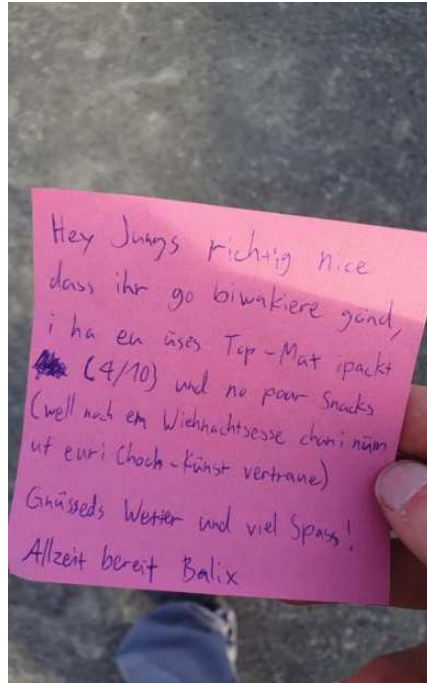 Hey Jungs richtig nice
dass ihr go biwakiere gönd,
i ha eu üses Top-Mat ipackt
(4/10) und no paar Snacks
(well nach em Wiehnachtsesse chan i nüm
uf euri Choch-Künst vertraue)
Gnüsseds Wetter und viel Spass!
Allzeit bereit Balix